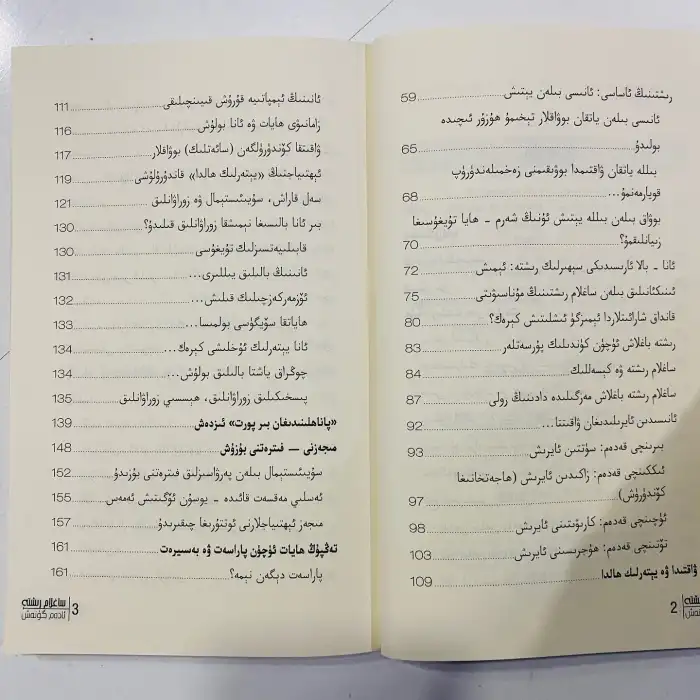 رىشتىنىڭ ئاساسى: ئانىسى بىلەن يېتىش 59
ئانىسى بىلەن ياتقان بوۋاقلار تېخىمۇ ھۇزۇر ئىچىدە
بولىدۇ 65
بىللە ياتقان ۋاقتىمدا بوۋىقىمنى زەخمىلەندۈرۈپ
قويارمەنمۇ... 68
بوۋاق بىلەن بىللە يېتىش ئۇنىڭ شەرم - ھايا تۇيغۇسىغا
زىيانلىقمۇ؟ 70
ئانا - بالا ئارىسىدىكى سېھىرلىك رىشتە: ئېمىش 72
ئىنىكئانىلىق بىلەن ساغلام رىشتىنىڭ مۇناسىۋىتى 75
قانداق شارائىتلاردا ئېمىزگۈ ئىشلىتىش كېرەك؟ 80
رىشتە باغلاش ئۈچۈن كۈندىلىك پۇرسەتلەر 83
ساغلام رىشتە ۋە كېسەللىك 84
ساغلام رىشتە باغلاش مەزگىلىدە دادىنىڭ رولى 87
ئانىسىدىن ئايرىلىدىغان ۋاقىتتا... 92
بىرىنچى قەدەم: سۈتتىن ئايرىش 93
ئىككىنچى قەدەم: زاكىدىن ئايرىش (ھاجەتخانىغا
كۆندۈرۈش) 97
ئۈچىنچى قەدەم: كارىۋىتىنى ئايرىش 98
تۆتىنچى قەدەم: ھۇجرىسىنى ئايرىش 103
ۋاقتىدا ۋە يېتەرلىك ھالدا 109
2
ئانىنىڭ ئېمپاتىيە قۇرۇش قىيىنچىلىقى 111
زامانىۋى ھايات ۋە ئانا بولۇش 116
ۋاقىتقا كۆندۈرۈلگەن (سائەتلىك) بوۋاقلار 117
ئېھتىياجنىڭ «يېتەرلىك ھالدا» قاندۇرۇلۇشى 119
سەل قاراش، سۇيىئىستېمال ۋە زوراۋانلىق 121
بىر ئانا بالىسىغا نېمىشقا زوراۋانلىق قىلىدۇ؟ 130
قابىلىيەتسىزلىك تۇيغۇسى 130
ئانىنىڭ بالىلىق يىللىرى... 131
ئۆزمەركەزچىلىك قىلىش... 132
ھاياتقا سۆيگۈسى بولمىسا... 133
ئانا يېتەرلىك ئۇخلىشى كېرەك... 134
چوڭراق ياشتا بالىلىق بولۇش... 134
پىسخىكىلىق زوراۋانلىق، ھېسسىي زوراۋانلىق 135
«پاناھلىنىدىغان بىر پورت» ئىزدەش 139
مىجەزنى — فىترەتنى بۇزۇش 148
سۇيىئىستېمال بىلەن پەرۋاسىزلىق فىترەتنى بۇزىدۇ 152
ئەسلىي مەقسەت قائىدە - يوسۇن ئۆگىتىش ئەمەس 155
مىجەز ئېھتىياجلارنى ئوتتۇرىغا چىقىرىدۇ 157
تەڭپۇڭ ھايات ئۈچۈن پاراسەت ۋە بەسىيرەت 161
پاراسەت دېگەن نېمە؟ 161
ساغلام رىشتە
ئادەم گۈنەش
3